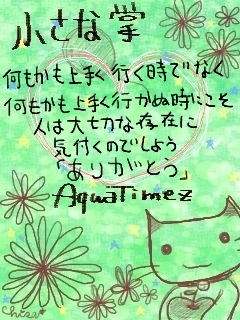 小さな掌
何もかも上手く行く時でなく
何もかも上手く行かぬ時にこそ
人は大切な存在に
気付くのでしょう
「ありがとう」
AquaTimez
chisa